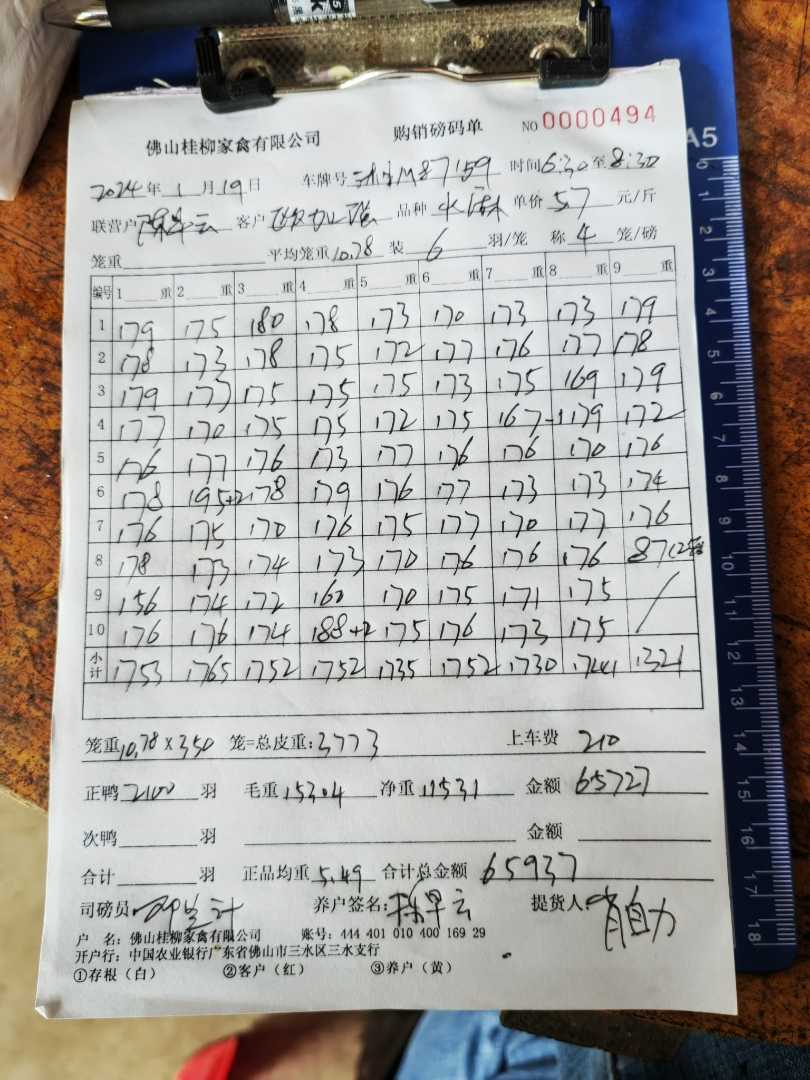 佛山桂柳家禽有限公司 购销磅码单 NO 0000494
2024年1月19日 车牌号 M87159 时间6:30至8:30
联营户 客户 品种 单价 5.7 元/斤
笼重 平均笼重10.78 装 6 羽/笼 称 4 笼/磅
编号 1 重 2 重 3 重 4 重 5 重 6 重 7 重 8 重 9 重
1 179 175 180 178 173 170 173 173 179
2 178 173 178 175 172 177 176 177 178
3 179 177 175 175 175 173 175 169 179
4 177 170 175 175 172 175 167-1 179 172
5 176 177 176 173 177 176 176 170 176
6 178 195+2 178 179 176 177 173 173 174
7 176 175 170 176 175 177 170 177 176
8 178 173 174 173 170 176 176 176 87(2
9 156 174 172 160 170 175 171 175 /
10 176 176 174 188+2 175 176 173 175
小计 1753 1765 1752 1752 1735 1752 1730 1744 1321
笼重10.78×350 笼=总皮重:3773 上车费 210
正鸭 2100 羽 毛重 15304 净重 11531 金额 65727
次鸭 羽 金额
合计 羽 正品均重 5.49 合计总金额 65937
司磅员 养户签名: 陈早云 提货人: 肖自力
户 名:佛山桂柳家禽有限公司 账号:444 401 010 400 169 29
开户行:中国农业银行广东省佛山市三水区三水支行
①存根(白) ②客户(红) ③养户(黄)
A5
0
1
2
3
4
5
6
7
8
9
10
11
12
13
14
15
16
17
18